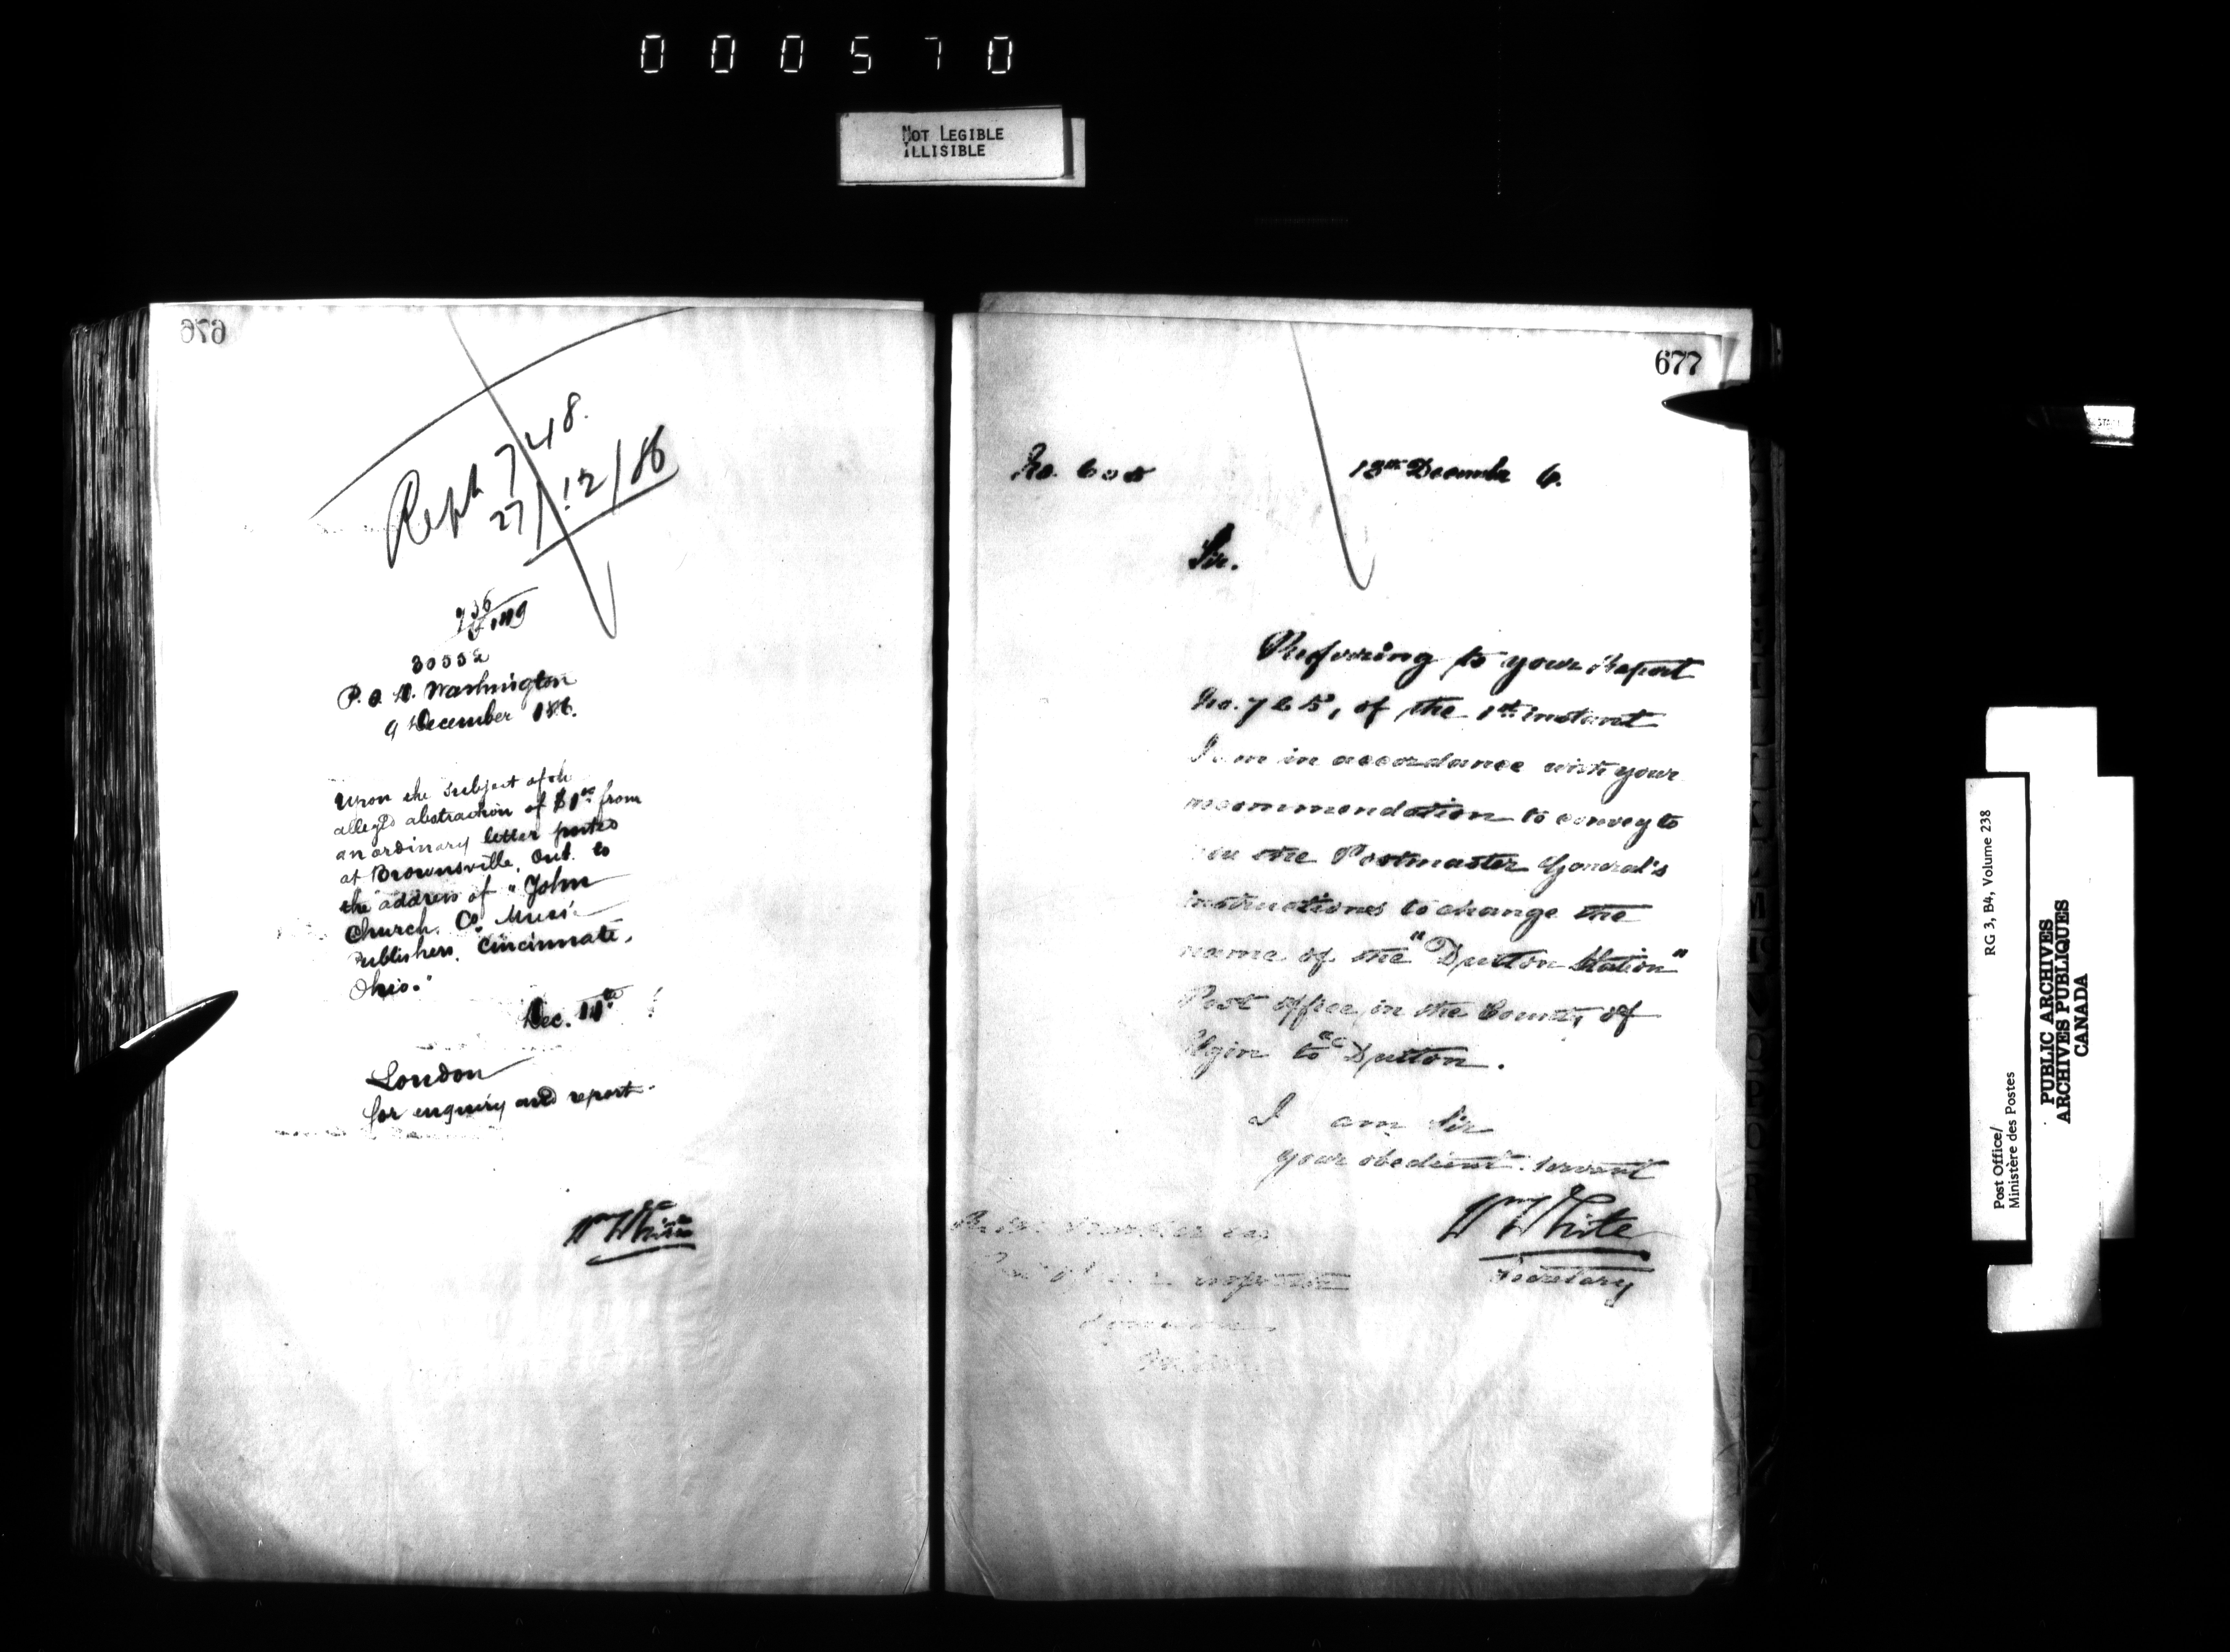 000570
NOT LEGIBLE
ILLISIBLE
676
Reply 748.
27/12/86
30552
P.O.D. Washington
9 December 186.
Upon the subject of the
alleged abstraction of $1 00 from
an ordinary letter posted
at Brownsville, Ont. to
the address of "John
Church. Co. Music
Publishers, Cincinnate,
Ohio."
Dec. 11th
London
for enquiry and report.
Wm White
677
No. 608
13th December 6.
Sir.
Referring to your Report
No. 765, of the 1st instant
I am in accordance with your
recommendation to convey to
you the Postmaster General's
instructions to change the
name of the "Dutton Station"
Post office in the County of
Elgin to "Dutton.
I am Sir
your obedient servant
Wm White
Secretary
Post Office/
Ministère des Postes
RG 3, B4, Volume 238
PUBLIC ARCHIVES
ARCHIVES PUBLIQUES
CANADA